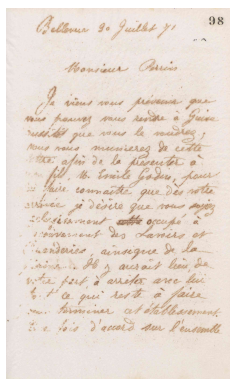 98
Bellevue 30 Juillet 71
Monsieur
Je viens vous prévenir que
vous pouvez vous rendre à Guise
que vous le voudrez,
vous vous munirez de cette
lettre afin de la présenter à
fils, M. Emile Godin, pour
lui faire connaître que dès votre
arrivée je désire que vous soyez
occupé à
l'achèvement des
ainsi que de la
s'il y aurait lieu, de
votre part, à arrêter avec lui
tout ce qui reste à faire
pour terminer cet établissement
fois d'accord sur l'ensemble